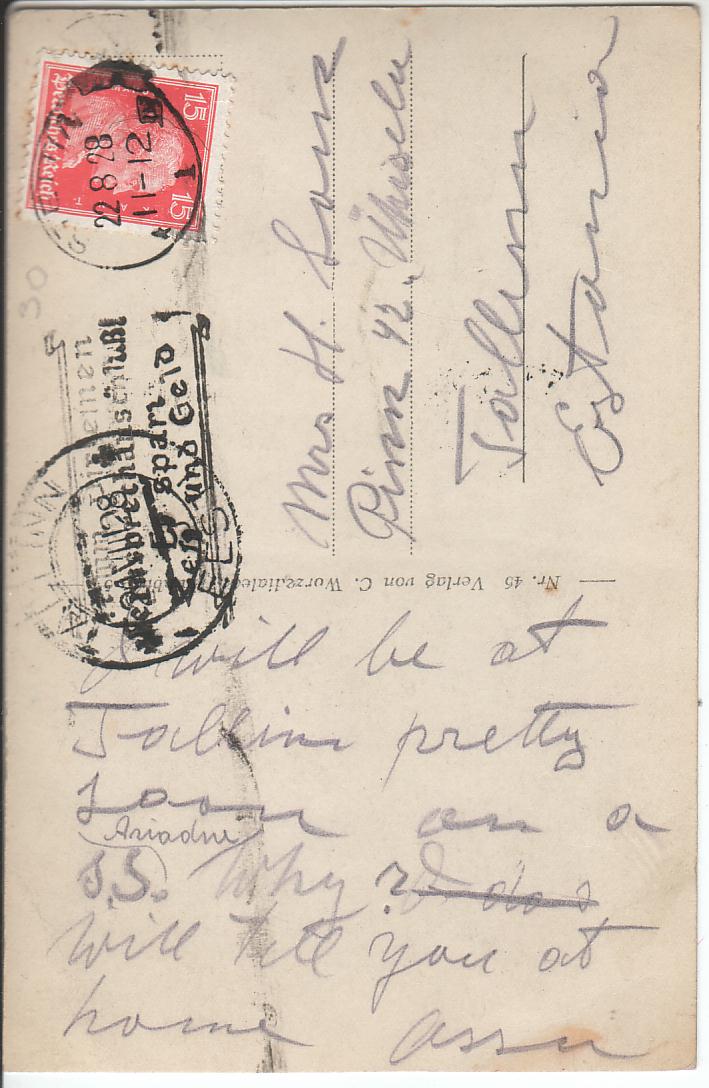 Deutsches Reich
15
15
22 8 28
11-12
30
Fernsprechanschluß
spart
Zeit und Geld
TALLINN
EESTI
Mrs H.
Pinn 42,
Tallinn
Estonia
Nr. 45 Verlag von C.
I will be at
Tallinn pretty
soon on a
Ariadne
S.S. Why?
will tell you at
home